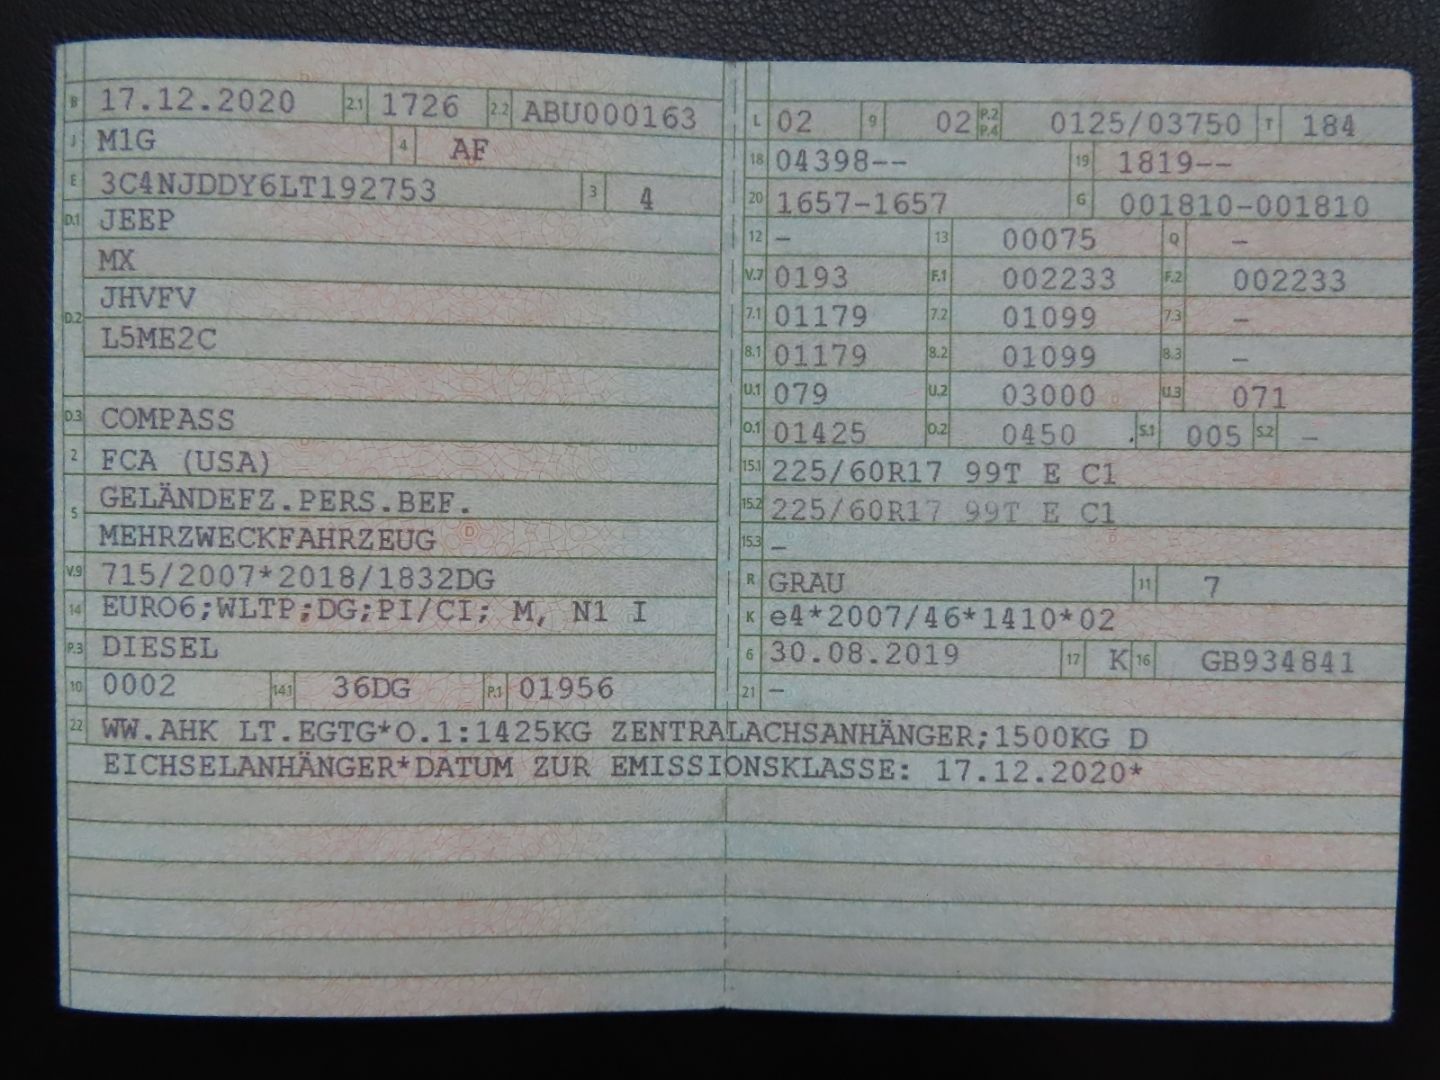 B 17.12.2020 2.1 1726 2.2 ABU000163
J M1G 4 AF
E 3C4NJDDY6LT192753 3 4
D.1 JEEP
MX
D.2 JHVFV
L5ME2C
D.3 COMPASS
2 FCA (USA)
5 GELÄNDEFZ.PERS.BEF.
MEHRZWECKFAHRZEUG
V.9 715/2007*2018/1832DG
14 EURO6;WLTP;DG;PI/CI; M, N1 I
P.3 DIESEL
10 0002 14.1 36DG P.1 01956
L 02 9 02 P.2 P.4 0125/03750 T 184
18 04398-- 19 1819--
20 1657-1657 G 001810-001810
12 - 13 00075 Q -
V.7 0193 F.1 002233 F.2 002233
7.1 01179 7.2 01099 7.3 -
8.1 01179 8.2 01099 8.3 -
U.1 079 U.2 03000 U.3 071
O.1 01425 O.2 0450 S.1 005 S.2 -
15.1 225/60R17 99T E C1
15.2 225/60R17 99T E C1
15.3 -
R GRAU 11 7
K e4*2007/46*1410*02
6 30.08.2019 17 K 16 GB934841
21 -
22 WW.AHK LT.EGTG*O.1:1425KG ZENTRALACHSANHÄNGER;1500KG D
EICHSELANHÄNGER*DATUM ZUR EMISSIONSKLASSE: 17.12.2020*